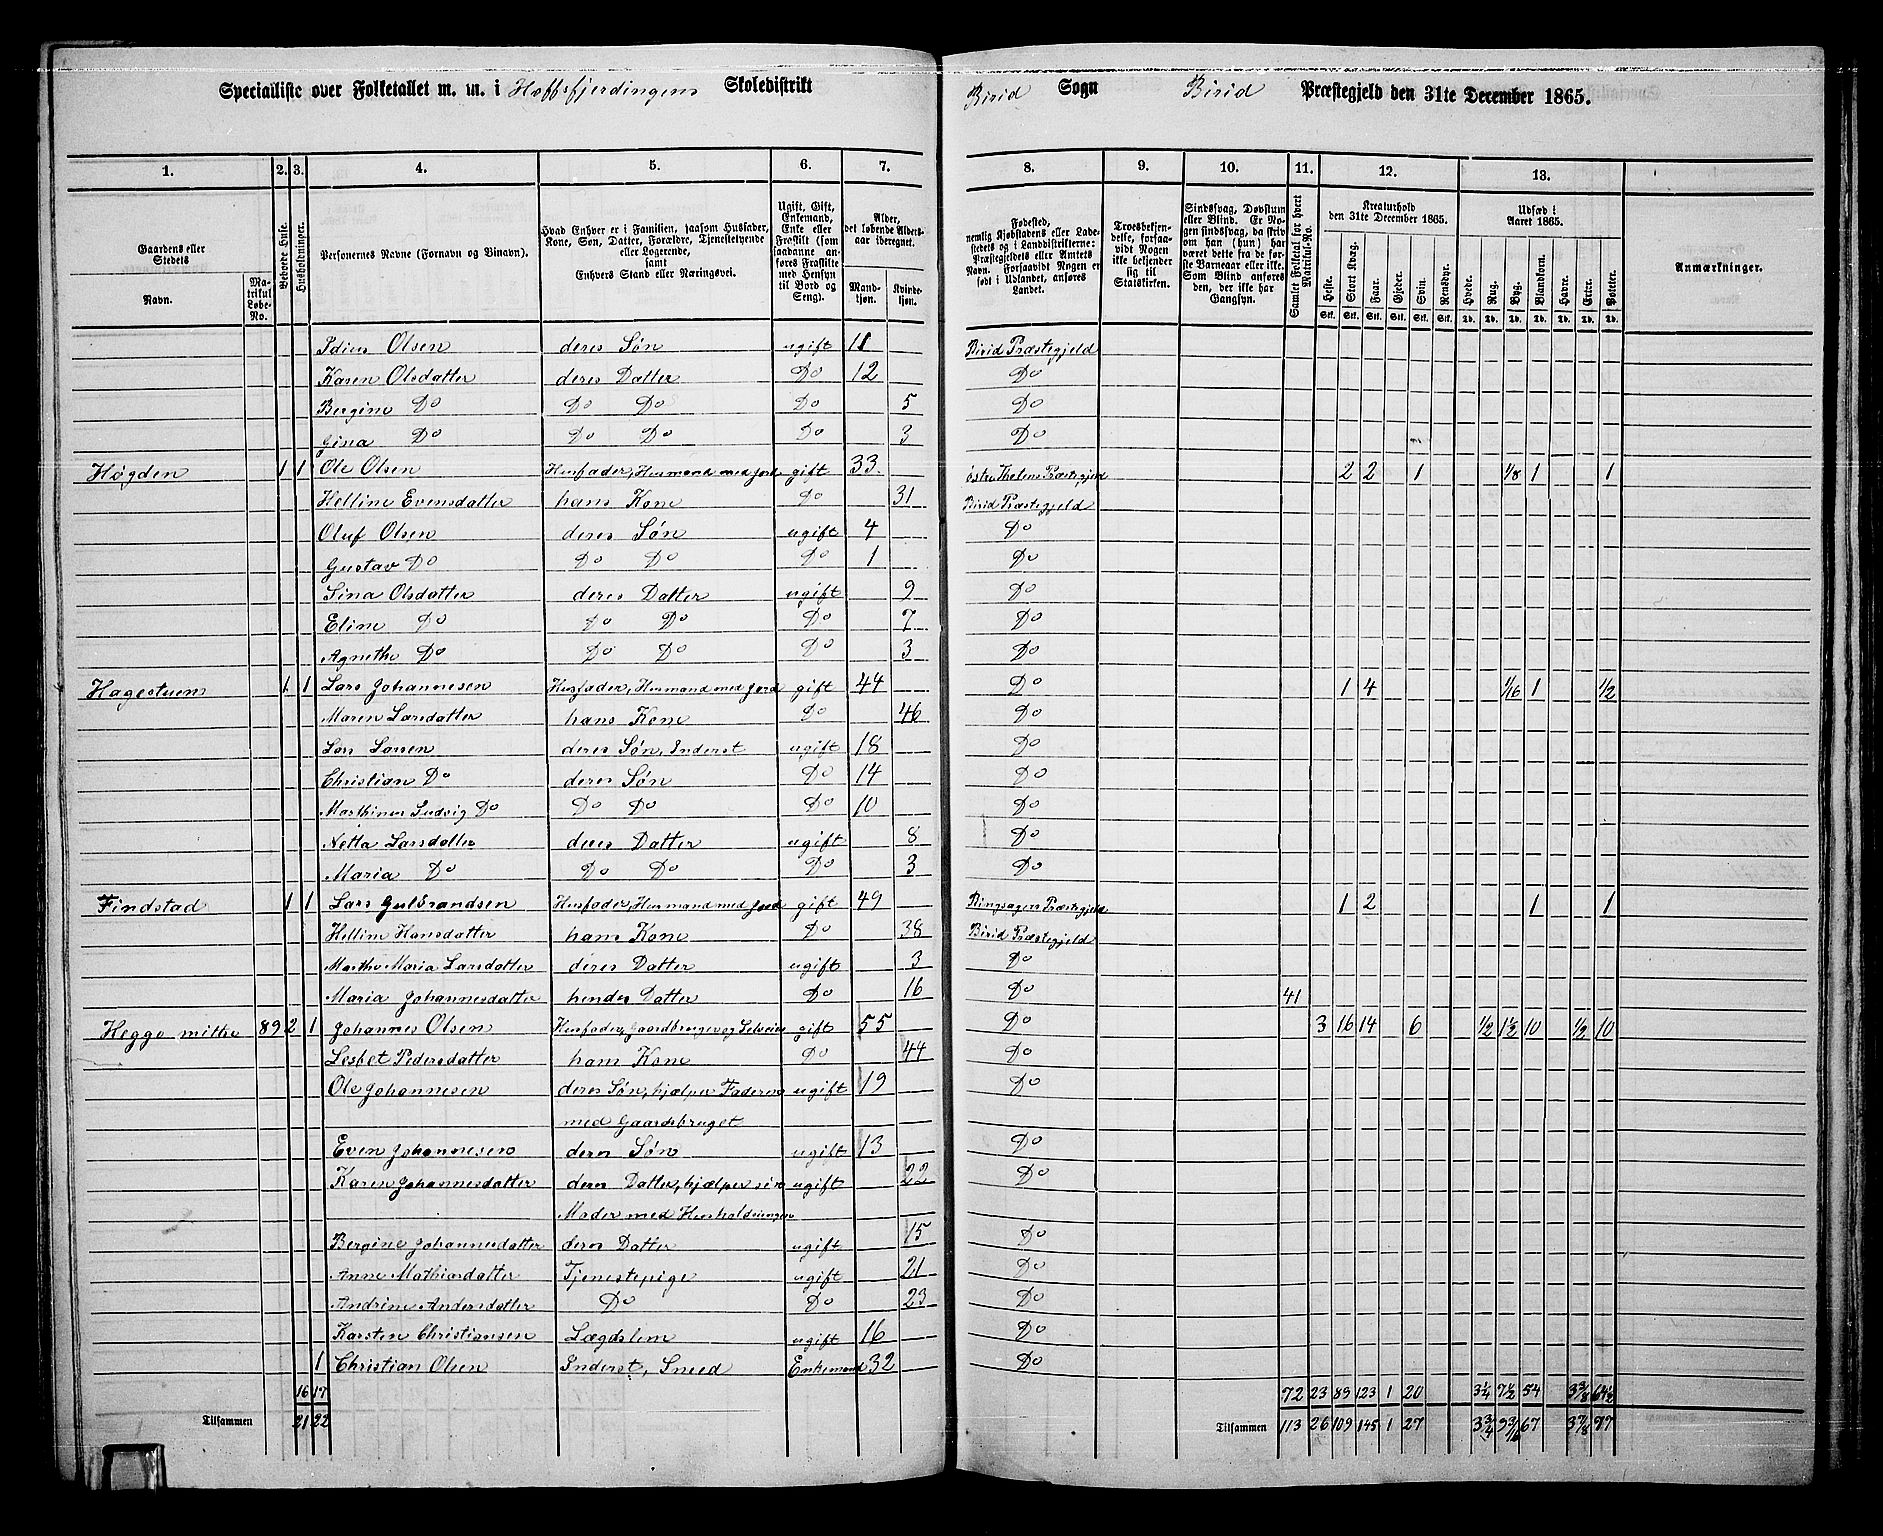 Specialliste over Folketallet m. m. i Hoffsfjerdingens Skoledistrikt Birid Sogn Birid Præstegjeld den 31te December 1865.
1. 2. 3. 4. 5. 6. 7. 8. 9. 10. 11. 12. 13.
Gaardens eller Stedets Navn. Matrikul Løbe-No. Beboede Huse. Husholdninger. Personernes Navne (Fornavn og Tilnavn). Hvad Enhver er i Familien, saasom Husfader, Kone, Søn, Datter, Forældre, Tjenestetyende eller Logerende, samt Enhvers Stand eller Næringsvei. Ugift, Gift, Enkemand, Enke eller Fraskilt (som saadanne anføres Fraskilte med Hensyn til Bord og Seng). Alder, det løbende Aldersaar iberegnet. Mandkjøn. Kvindekjøn. Fødested, nemlig Kjøbstadens eller Ladestedets og i Landdistrikterne: Præstegjeldets eller Amtets Navn. Forsaavidt Nogen er født i Udlandet, anføres Landet. Troesbekjendelse, forsaavidt Nogen ikke bekjender sig til Statskirken. Sindssvag, Døvstum eller Blind. Er Nogen sindssvag, da skrives om han (hun) har været dette fra de første Barneaar eller ikke. Som Blind anføres den, der ikke har Gangsyn. Samlet Folketal for hvert Matrikul-No. Kreaturhold den 31te December 1865. Heste. Stort Kvæg. Faar. Gjeder. Svin. Rensdyr. Udsæd i Aaret 1865. Hvede. Rug. Byg. Blandkorn. Havre. Erter. Poteter. Anmærkninger.
Stk. Stk. Stk. Stk. Stk. Stk. Td. Td. Td. Td. Td. Td. Td.
Olsen deres Søn ugift 11 Birid Præstegjeld
Karen Olsdatter deres Datter Do 12 Do
Bergine Do Do Do Do 5 Do
Gina Do Do Do Do 3 Do
Høgden 1 1 Ole Olsen Husfader, Husmand med Jord gift 33 Præstegjeld 2 2 1 1/8 1 1
Helline Evensdatter hans Kone Do 31 Birid Præstegjeld
Oluf Olsen deres Søn ugift 4 Do
Gustav Do Do Do Do 1 Do
Sina Olsdatter deres Datter ugift 9 Do
Eline Do Do Do Do 7 Do
Agnethe Do Do Do Do 3 Do
Hagestuen 1 1 Lars Johannesen Husfader, Husmand med Jord gift 44 Do 1 4 1/16 1 1/2
Maren Larsdatter hans Kone Do 46 Do
Lars Larsen deres Søn, Inderst ugift 18 Do
Christian Do deres Søn Do 14 Do
Marthinus Ludvig Do Do Do Do 10 Do
Netta Larsdatter deres Datter ugift 8 Do
Maria Do Do Do Do 3 Do
Findstad 1 1 Lars Gulbrandsen Husfader, Husmand med Jord gift 49 Ringsager Præstegjeld 1 2 1 1
Helline Hansdatter hans Kone Do 38 Birid Præstegjeld
Marthe Maria Larsdatter deres Datter ugift 3 Do
Maria Johannesdatter hendes Datter Do 16 Do 41
Heggo mithre 89 2 1 Johannes Olsen Husfader, Gaardbruger og Selveier gift 55 Do 3 16 14 6 1/2 1 1/2 10 1/2 10
Lesbet Pedersdatter hans Kone Do 44 Do
Ole Johannesen deres Søn, hjælper Faderen ugift 19 Do
med Gaardsbruget
Even Johannesen deres Søn ugift 13 Do
Karen Johannesdatter deres Datter, hjælper sin ugift 22 Do
Moder med Husholdningen
Bergine Johannesdatter deres Datter ugift 15 Do
Anne Mathiasdatter Tjenestepige ugift 21 Do
Andrine Andersdatter Do Do 23 Do
Karsten Christiansen Lægdslem ugift 16 Do
1 Christian Olsen Inderst, Sneed Enkemand 32 Do
16 17 72 23 89 123 1 20 3 1/4 7 1/2 54 3 3/8 64 1/2
Tilsammen 21 22 Tilsammen 113 26 109 145 1 27 3 3/4 9 3/16 67 3 7/8 77